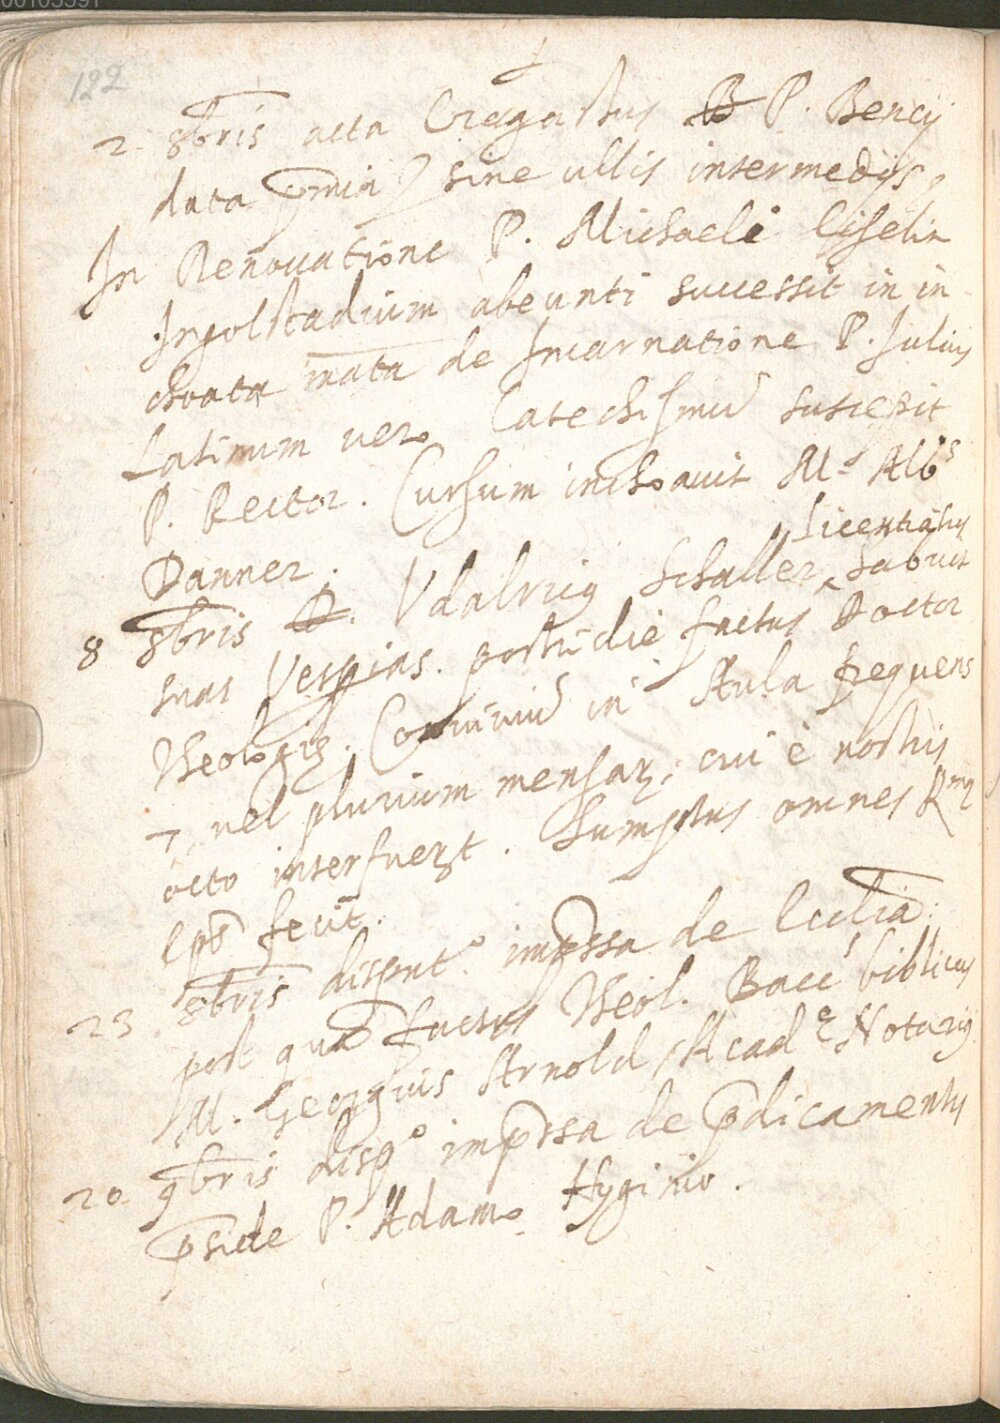 122
2. 8bris acta Ergastus P. Bencij
data pmia sine ullis intermedijs,
In Renouatione P. Michaeli Eiselin
Ingolstadium abeunti successit in in
choata mata de Incarnatione P. Julius
Latinum uero Catechismu suscepit
P. Rector. Cursum inchoauit M. Alb
Danner.
Licentiatus
8 8bris D. Vdalricus Schaller habuit
suas Vesperias. postridie factus Doctor
Theologiae. Conuiuiu in Aula frequens
7 uel plurium mensarum; cui è nostris
octo interfuerunt. Sumptus omnes Rmus
Eps fecit.
23 8bris disput.o impssa de Ecclia:
post qua factus Theol. Bacc biblicus
M. Georgius Arnold, Acade Notarius.
20 9bris disp.o impssa de pdicamentis
pside P. Adamo Hyginio.